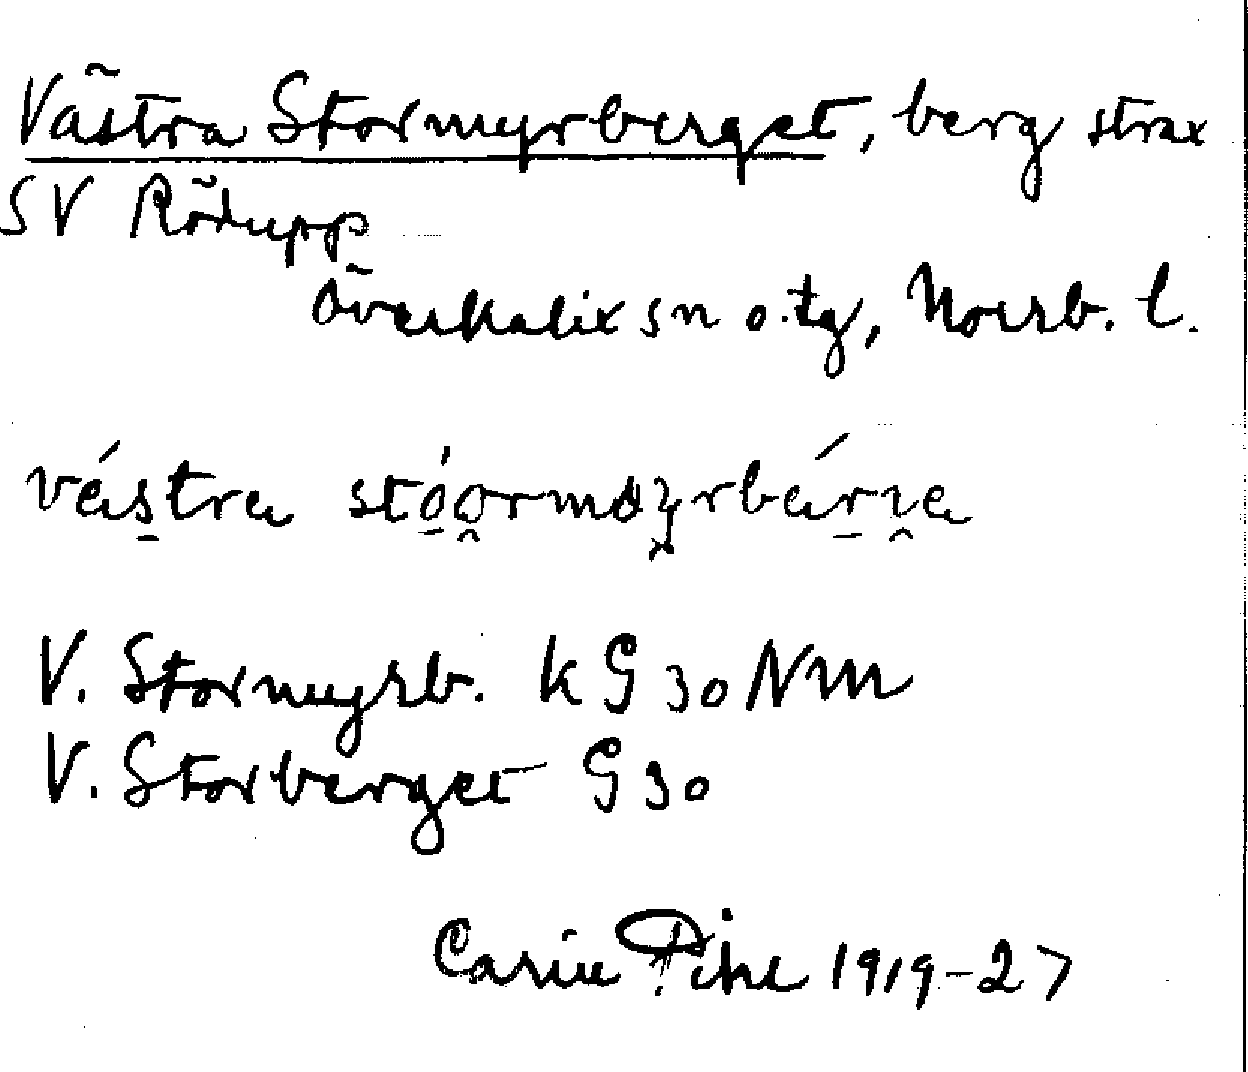 Västra Stormyrberget, berg strax
SV Rödupp
Överkalix sn o. tg, Norrb. l.
västra stóormøyrbärje
V. Stormyrb. kG 30 NM
V. Storberget G 30
Carin Pihl 1919-27